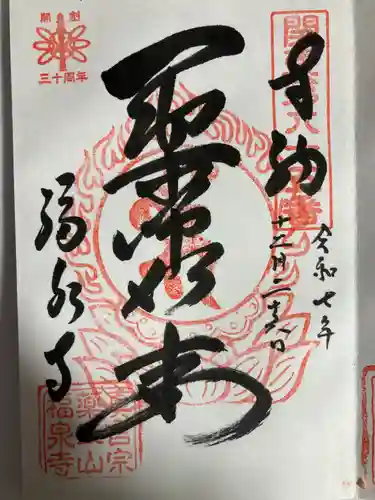 開創
三十周年
奉納
令和七年
十二月二十八日
薬師如来
福泉寺
真言宗
薬王山
福泉寺